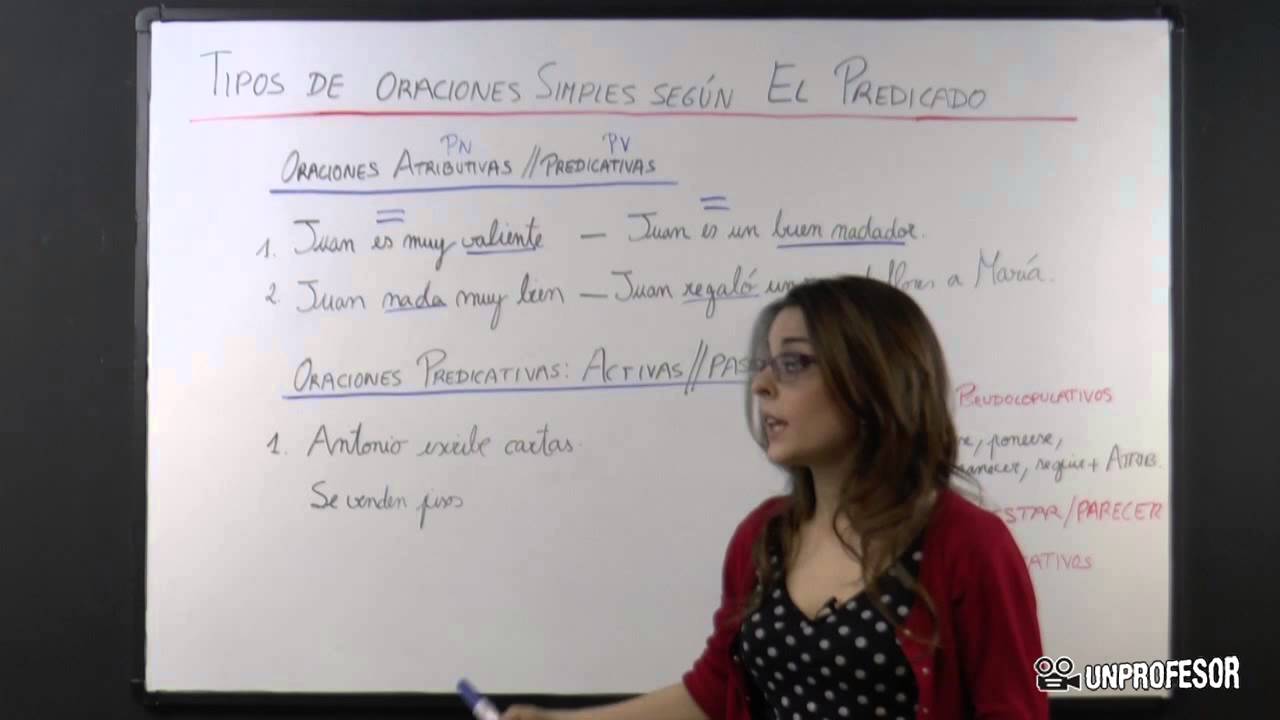 TIPOS DE ORACIONES SIMPLES SEGÚN EL PREDICADO
PN PV
ORACIONES ATRIBUTIVAS // PREDICATIVAS
= =
1. Juan es muy valiente — Juan es un buen nadador.
2. Juan nada muy bien — Juan regaló un flores a María.
ORACIONES PREDICATIVAS: ACTIVAS // PAS
PSEUDOCOPULATIVOS
ponerse,
1. Antonio escribe cartas.
seguir + ATRIB.
Se venden pisos
ESTAR/PARECER
ATIVOS
UNPROFESOR